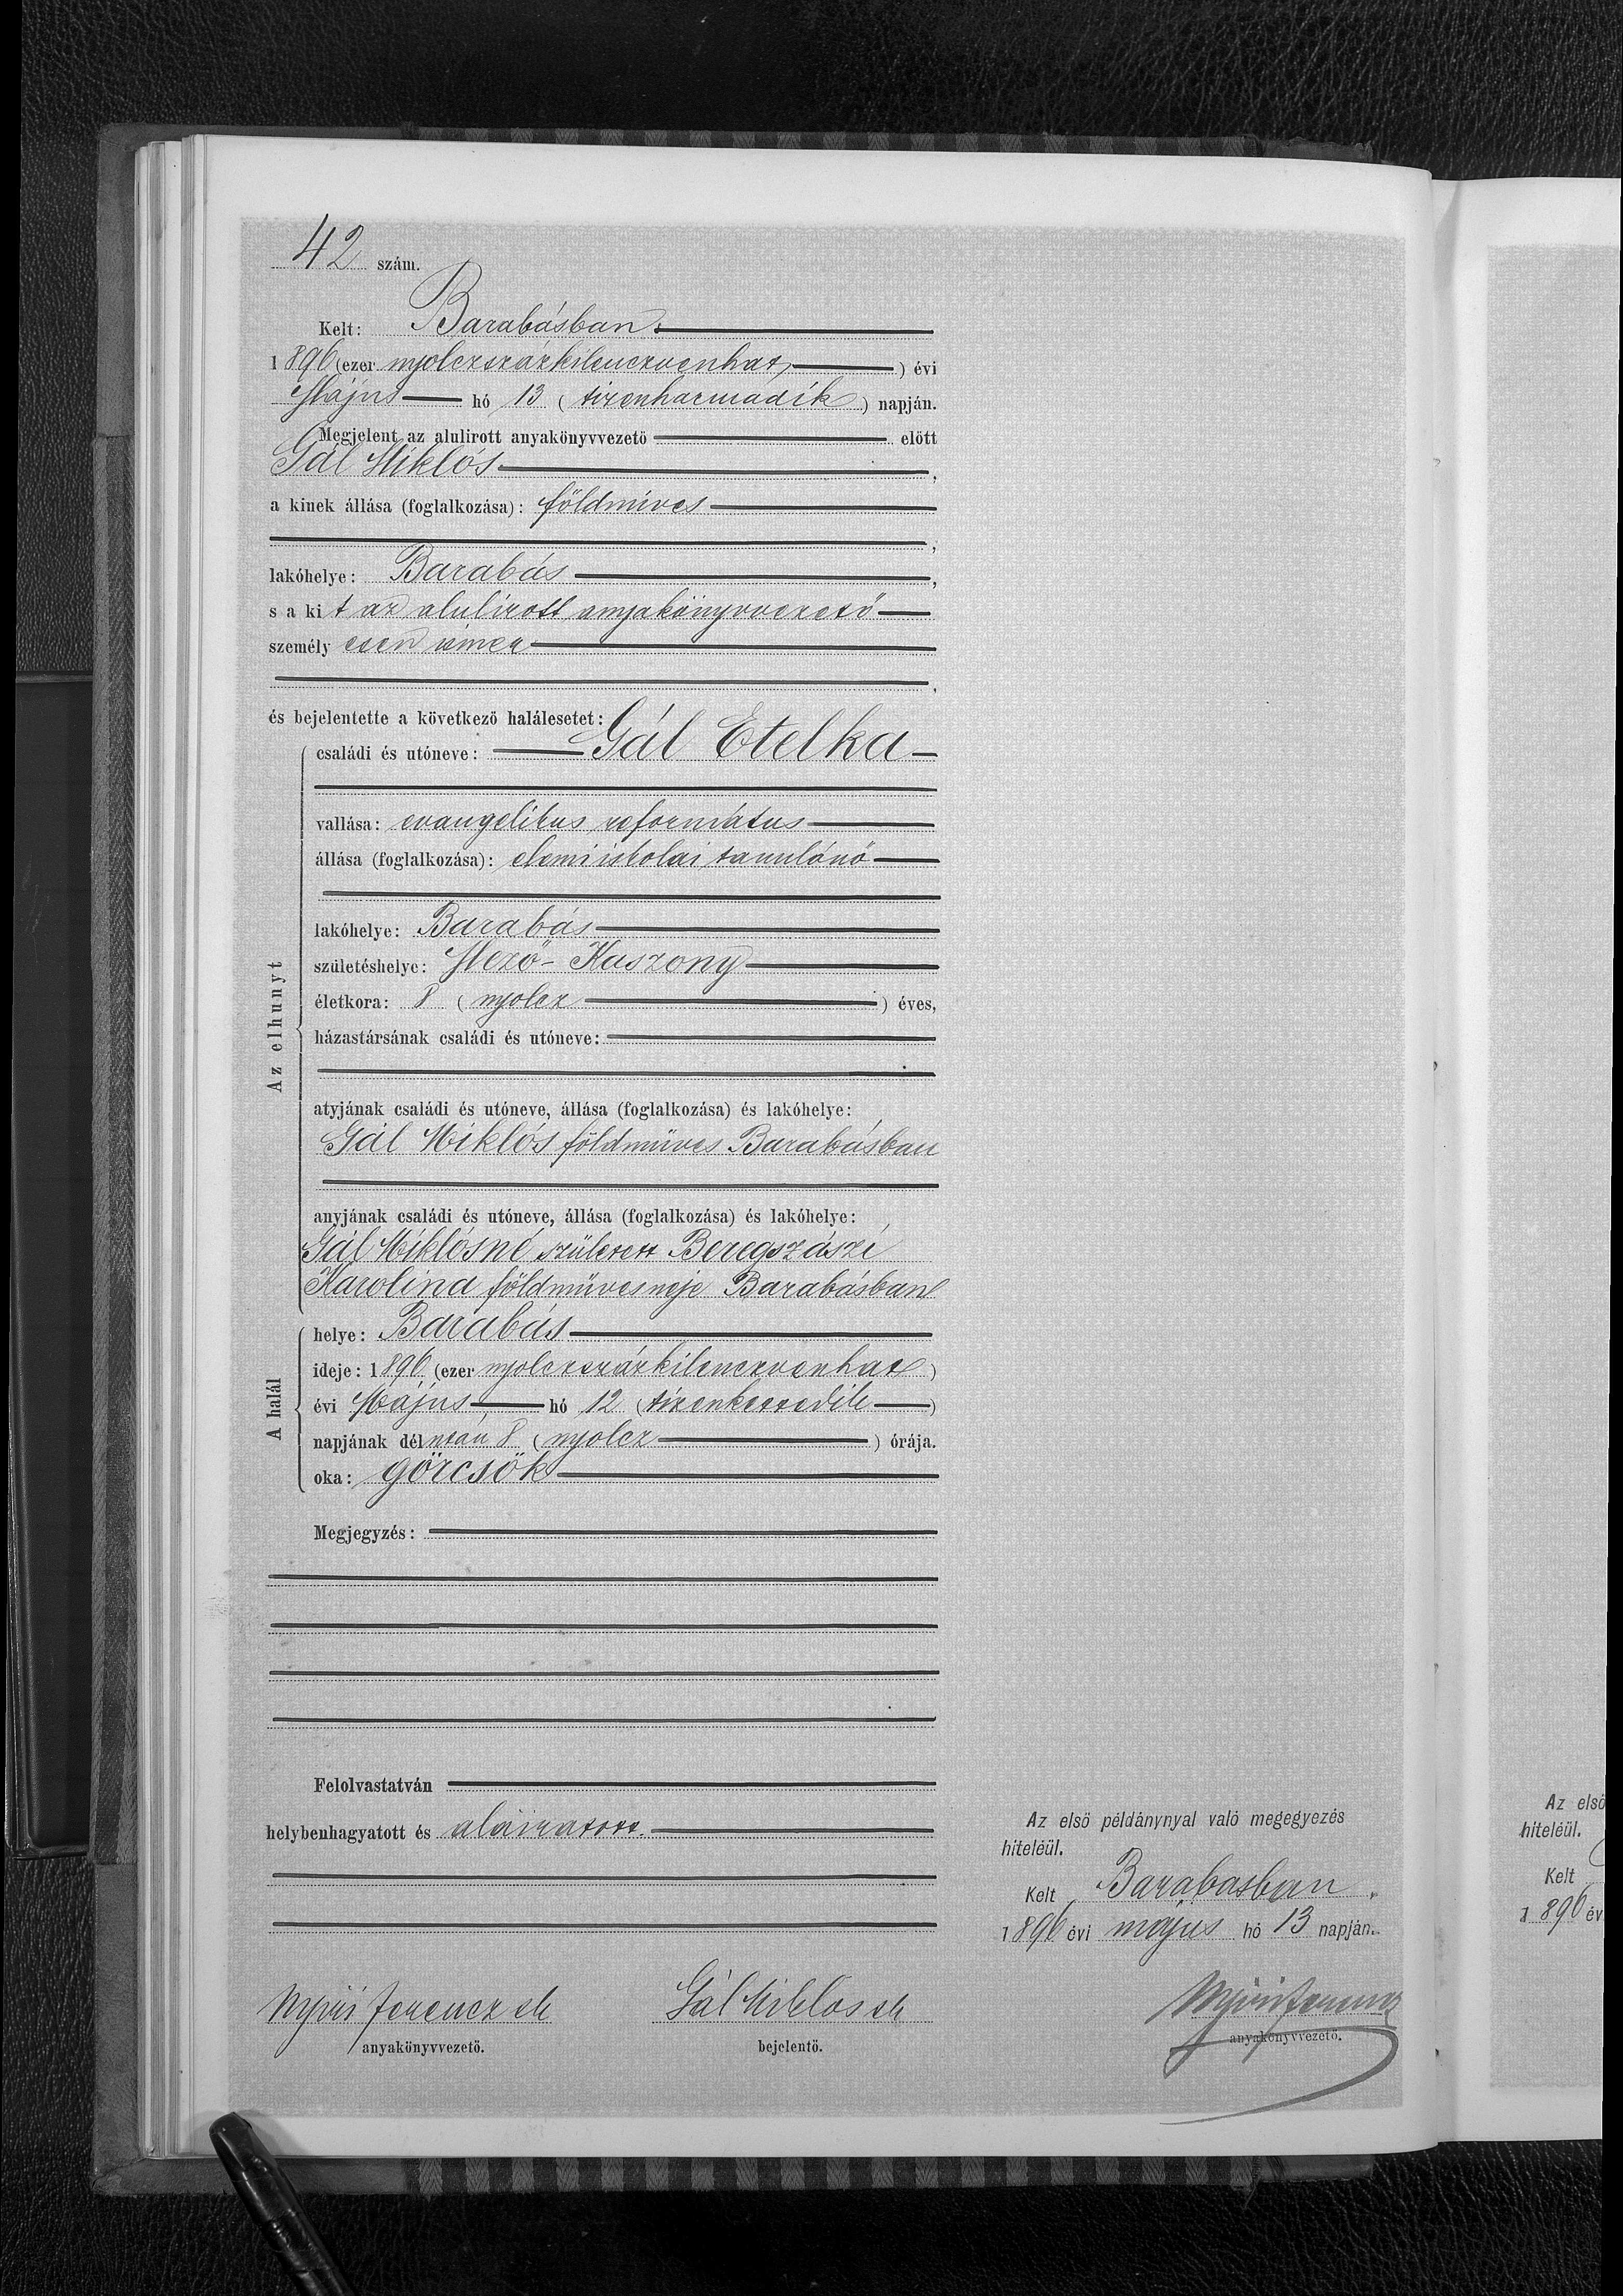 42 szám.
Kelt: Barabásban
1896 (ezer nyolczszázkilenczvenhat) évi
Május hó 13 (tizenharmadik) napján.
Megjelent az alulirott anyakönyvvezető előtt
Gál Miklós,
a kinek állása (foglalkozása): földmíves
,
lakóhelye: Barabás,
s a kit az alulirott anyakönyvvezető
személyesen ismer
,
és bejelentette a következő halálesetet:
Az elhunyt
családi és utóneve: Gál Etelka
vallása: evangelikus református
állása (foglalkozása): elemi iskolai tanulónő
lakóhelye: Barabás
születéshelye: Mező-Kaszony
életkora: 8 (nyolcz) éves,
házastársának családi és utóneve:
atyjának családi és utóneve, állása (foglalkozása) és lakóhelye:
Gál Miklós földmüves Barabásban
anyjának családi és utóneve, állása (foglalkozása) és lakóhelye:
Gál Miklósné született Beregszászi
Karolina földmüves neje Barabásban
A halál
helye: Barabás
ideje: 1896 (ezer nyolczszázkilenczvenhat)
évi Május hó 12 (tizenkettedik)
napjának délután 8 (nyolcz) órája.
oka: görcsök
Megjegyzés:
Felolvastatván
helybenhagyatott és aláiratott.
Nyiri Ferencz sk
anyakönyvvezető.
Gál Miklos sk
bejelentő.
Az első példánynyal való megegyezés
hiteléül.
Kelt Barabasban
1896 évi május hó 13 napján.
Nyiri Ferencz
anyakönyvvezető.
Az első
hiteléül.
Kelt
1896 év